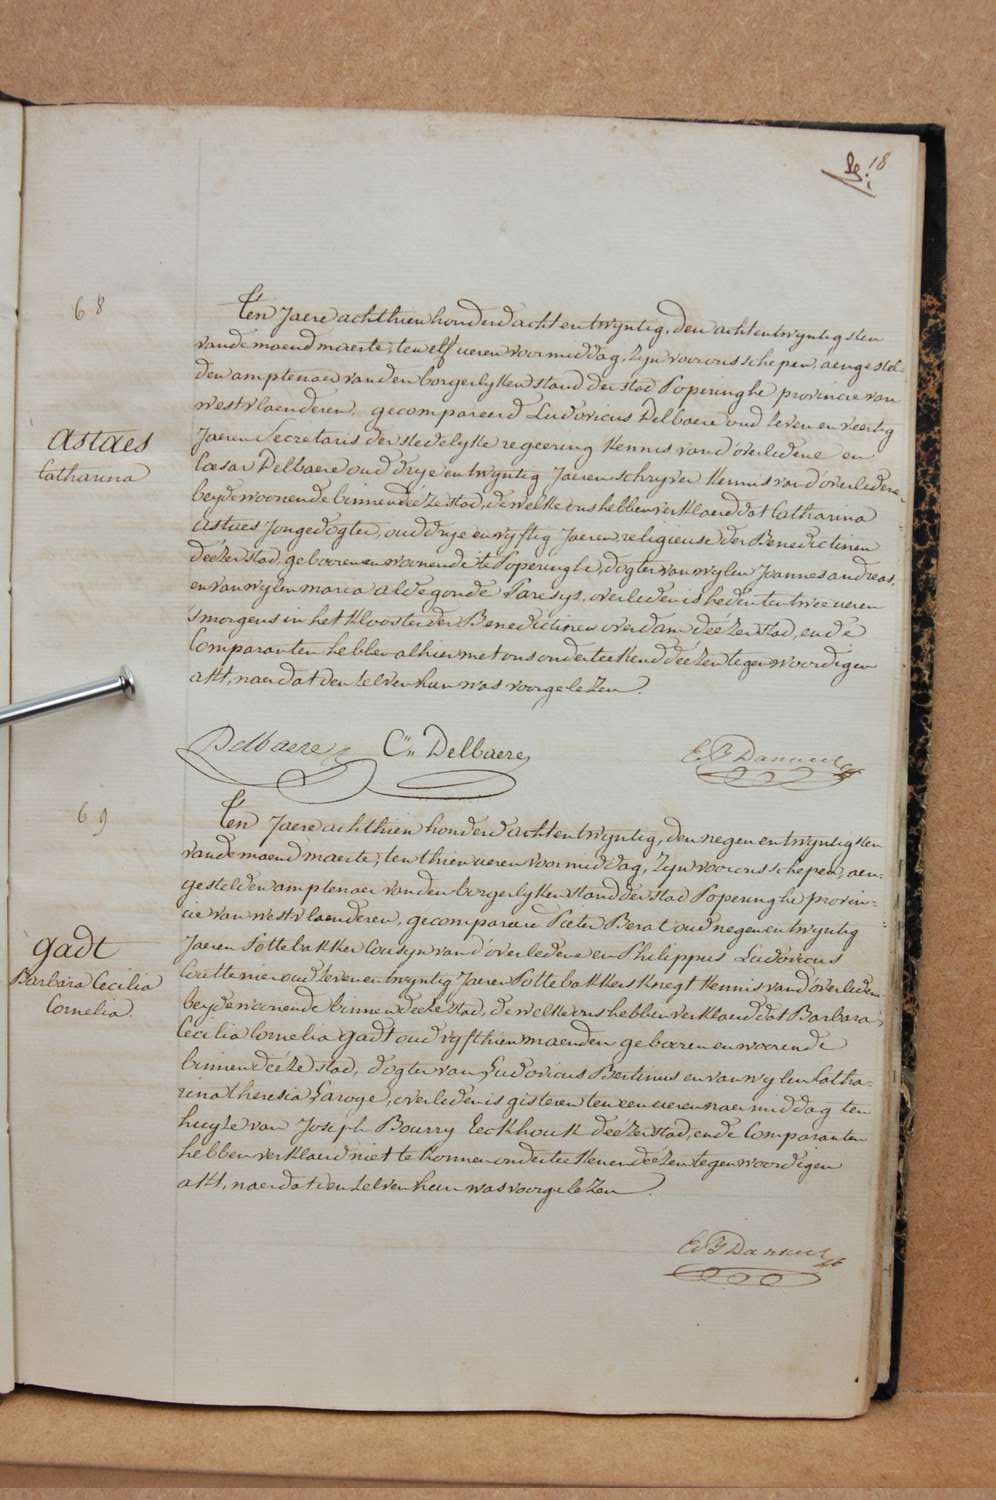 18
68
Ten Jaere achthien honderd acht en twyntig, den acht en twyntigsten
vande maend maerte, ten elf ueren voormiddag, zyn voor ons schepen, aengestel-
den amptenaer van den borgerlyken stand der stad Poperinghe provincie van
westvlaenderen, gecompareerd Ludovicus Delbaere oud zeven en veertig
Jaeren Secretaris der stedelyke regeering kennis vand'overledene en
astaes
Catharina
Caesar Delbaere oud drye en twyntig Jaeren schryver kennis vand'overledene,
beyde woonende binnen deéze stad, de welke ons hebben verklaerd dat Catharina
astaes Jongedogter, oud drye en vyftig Jaeren, religieuse der Benedictinen
deézer stad, gebooren en woonende te Poperinghe, dogter van wylen Joannes andreas,
en van wylen maria aldegonde Parisys, overleden is heden ten twee ueren
smorgens in het klooster der Benedictinen overdam deézer stad, ende
Comparanten hebben alhier met ons onderteekend deézen tegenwoordigen
akt, naer dat den zelven hun was voorgelezen.
Delbaere Cn Delbaere
69
Ten Jaere achthien honderd acht en twyntig, den negen en twyntigsten
vande maend maerte, ten thien ueren voormiddag, zyn voor ons schepen, aen-
gestelden amptenaer van den borgerlyken stand der stad Poperinghe provin-
cie van westvlaenderen, gecompareerd Pieter Berat oud negen en twyntig
gadt
Barbara Cecilia
Cornelia
Jaeren Pottebakker Cousyn vand'overledene en Philippus Ludovicus
Couttenier oud zeven en twyntig Jaeren Pottebakkers knegt kennis vand'overledene
beyde woonende binnen deéze stad, de welke ons hebben verklaerd dat Barbara
Cecilia Cornelia gadt oud vyfthien maenden gebooren en woonende
binnen deéze stad, dogter van Ludovicus Bertinus en van wylen Catha-
rina theresia Laroye, overleden is gisteren ten een ueren naermiddag ten
huyze van Joseph Bourry Eeckhouk deézer stad, ende Comparanten
hebben verklaerd niet te konnen onderteekenen deézen tegenwoordigen
akt, naer dat den zelven hun was voorgelezen.